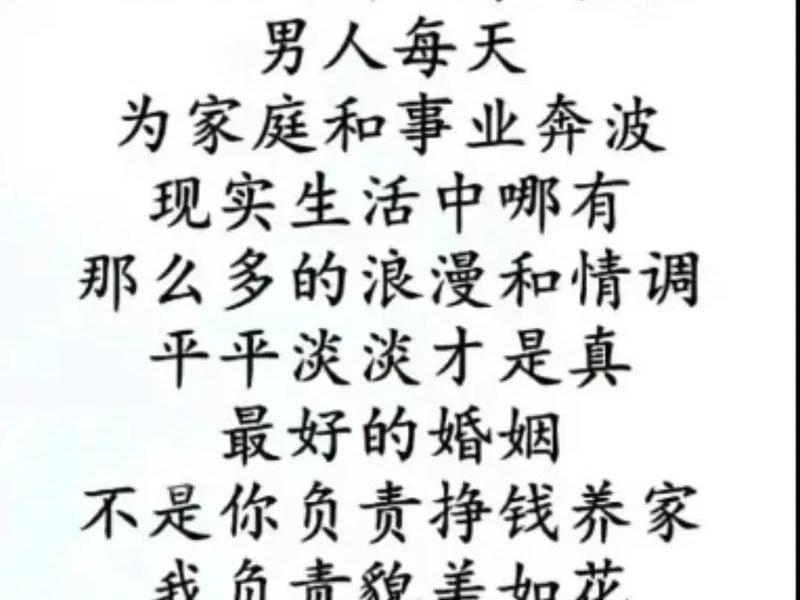 男人每天
为家庭和事业奔波
现实生活中哪有
那么多的浪漫和情调
平平淡淡才是真
最好的婚姻
不是你负责挣钱养家
我负责貌美如花